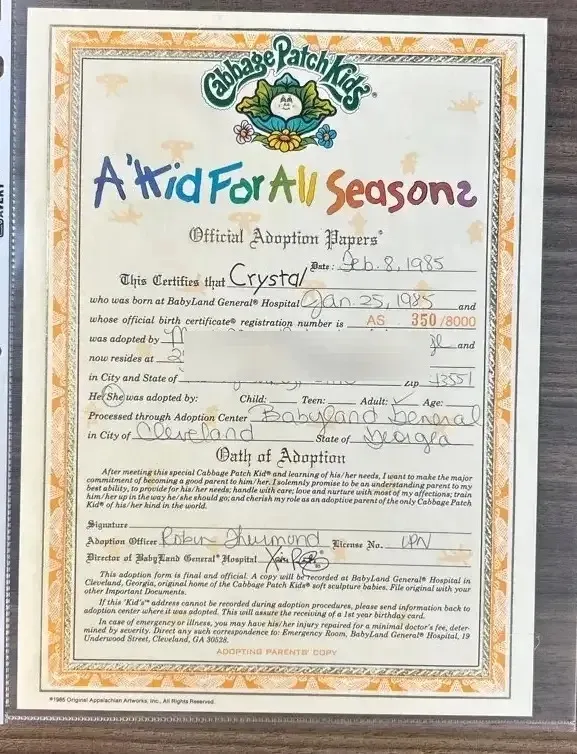 Cabbage Patch Kids®
A 'Kid For All Seasons
Official Adoption Papers®
Date: Feb. 8, 1985
This Certifies that Crystal
who was born at BabyLand General® Hospital Jan. 25, 1985 and
whose official birth certificate® registration number is AS 350/8000
was adopted by and
now resides at 2
in City and State of zip 13551
He/She was adopted by: Child: Teen: Adult: ✓ Age:
Processed through Adoption Center Babyland General
in City of Cleveland State of Georgia
Oath of Adoption
After meeting this special Cabbage Patch Kid® and learning of his/her needs, I want to make the major
commitment of becoming a good parent to him/her. I solemnly promise to be an understanding parent to my
best ability, to provide for his/her needs; handle with care; love and nurture with most of my affections; train
him/her up in the way he/she should go; and cherish my role as an adoptive parent of the only Cabbage Patch
Kid® of his/her kind in the world.
Signature
Adoption Officer Robin License No. LPN
Director of BabyLand General® Hospital
This adoption form is final and official. A copy will be recorded at BabyLand General® Hospital in
Cleveland, Georgia, original home of the Cabbage Patch Kids® soft sculpture babies. File original with your
other Important Documents.
If this 'Kid's™ address cannot be recorded during adoption procedures, please send information back to
adoption center where it was adopted. This will assure the receiving of a 1st year birthday card.
In case of emergency or illness, you may have his/her injury repaired for a minimal doctor's fee, deter-
mined by severity. Direct any such correspondence to: Emergency Room, BabyLand General® Hospital, 19
Underwood Street, Cleveland, GA 30528.
ADOPTING PARENTS' COPY
©1985 Original Appalachian Artworks, Inc., All Rights Reserved.
AVERY